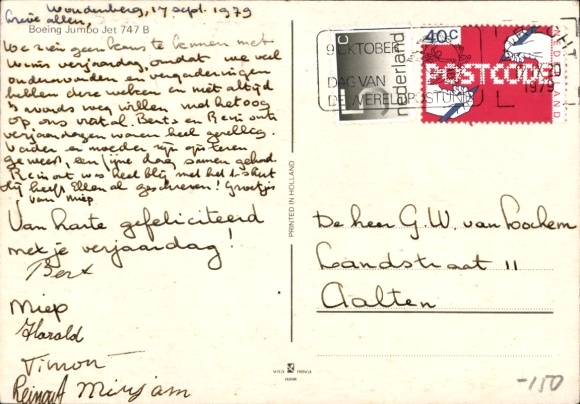 Woudenberg, 17 sept. 1979
Lieve allen,
Boeing Jumbo Jet 747 B
We zien geen kans te komen met
Wims verjaardag, omdat we veel
ouderavonden en vergaderingen
hebben deze weken en niet altijd
's avonds weg willen met het oog
op ons viertal. Berts en Reinouts
verjaardagen waren heel gezellig.
Vader en moeder zijn gisteren
geweest, een fijne dag samen gehad.
Reinout was heel blij met het t-shirt
Hij heeft Ellen al geschreven! Groetjes
van Miep
Van harte gefeliciteerd
met je verjaardag!
Bert
Miep
Harald
Timon
Reinout Mirjam
PRINTED IN HOLLAND
vita nova
9 OKTOBER
DAG VAN
DE WERELDPOSTUNIE
1979
5c
nederland
40c
POSTCODE
NEDERLAND
De heer G.W. van Lochem
Landstraat 11
Aalten
-150